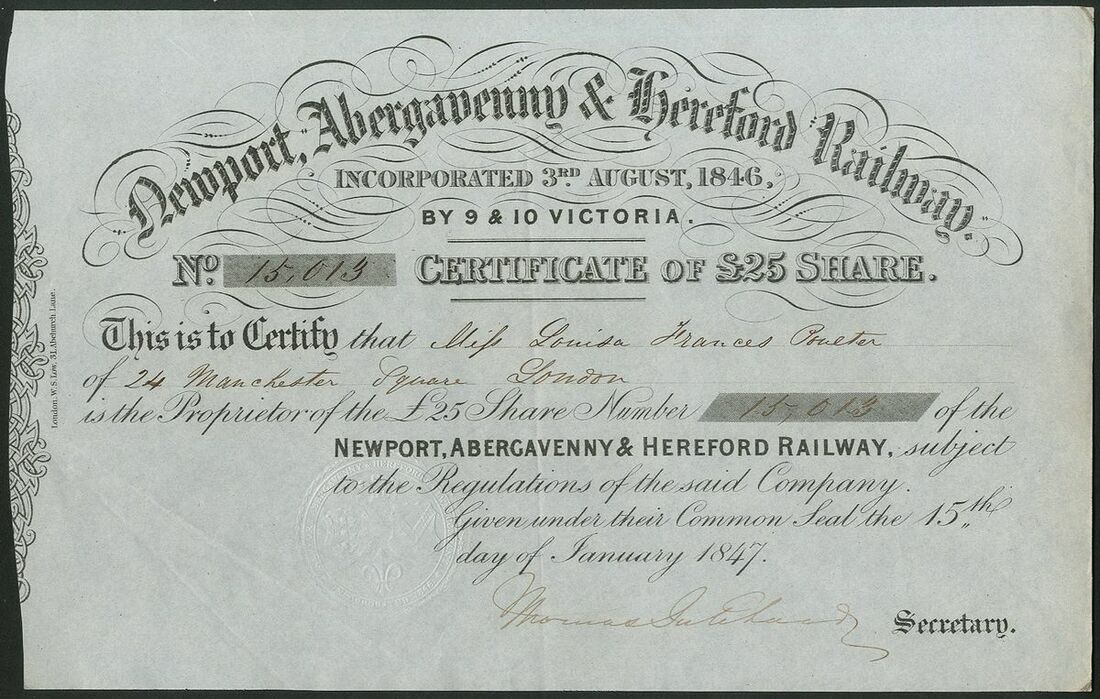 Newport, Abergavenny & Hereford Railway.
INCORPORATED 3RD AUGUST, 1846,
BY 9 & 10 VICTORIA.
No. 15,013 CERTIFICATE OF £25 SHARE.
This is to Certify that Miss Louisa Frances Poulter
of 24 Manchester Square London
is the Proprietor of the £25 Share Number 15,013 of the
NEWPORT, ABERGAVENNY & HEREFORD RAILWAY, subject
to the Regulations of the said Company.
Given under their Common Seal the 15th
day of January 1847.
Thomas
Secretary.
London. W. S. Low, 31, Abchurch Lane.